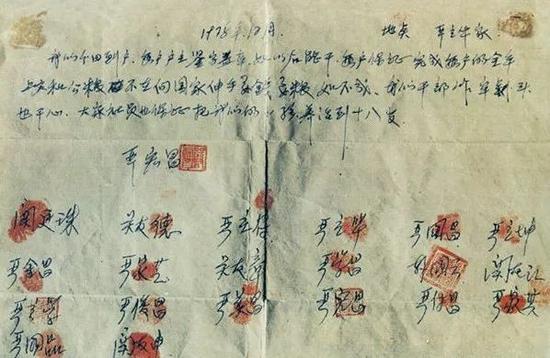 1978年12月 地点 严立华家
我们分田到户,每户户主签字盖章,如以后能干,每户保证完成每户的全年
上交和公粮 不在向国家伸手要钱要粮,如不成,我们干部作牢杀头
也干心,大家社员也保证把我们的小孩养活到十八岁
严宏昌
关廷珠 关友德 严立符 严立华 严国昌 严立坤
严金昌 严家芝 关友章 严学昌 韩国云 关友江
严立学 严俊昌 严美昌 严宏昌 严付昌 严家其
严国品 关友申